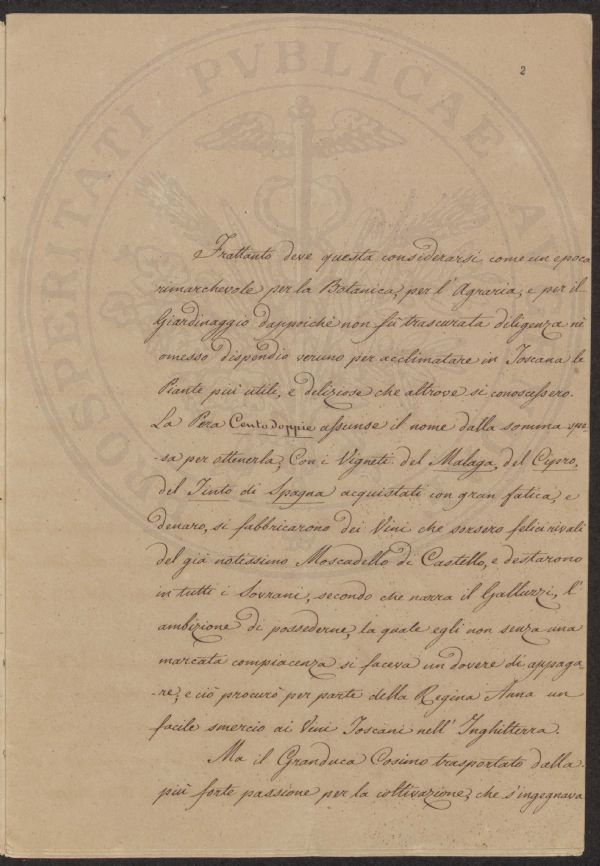 2
PROSPERITATI PVBLICAE AV
Frattanto deve questa considerarsi come un epoca
rimarchevole per la Botanica, per l'Agraria, e per il
Giardinaggio dappoichè non fù trascurata diligenza nè
omesso dispendio veruno per acclimatare in Toscana le
Piante più utili, e deliziose che altrove si conoscessero.
La Pera Cento doppie assunse il nome dalla somma spe-
-sa per ottenerla, Con i Vigneti del Malaga, del Cipro,
del Tinto di Spagna acquistati con gran fatica, e
denaro, si fabbricarono dei Vini che sorsero felici rivali
del già notissimo Moscadello di Castello, e destarono
in tutti i Sovrani, secondo che narra il Galluzzi, l'
ambizione di possederne, la quale egli non senza una
marcata compiacenza si faceva un dovere di appaga-
-re, e ciò procurò per parte della Regina Anna un
facile smercio ai Vini Toscani nell'Inghilterra.
Ma il Granduca Cosimo trasportato dalla
più forte passione per la coltivazione, che s'ingegnava